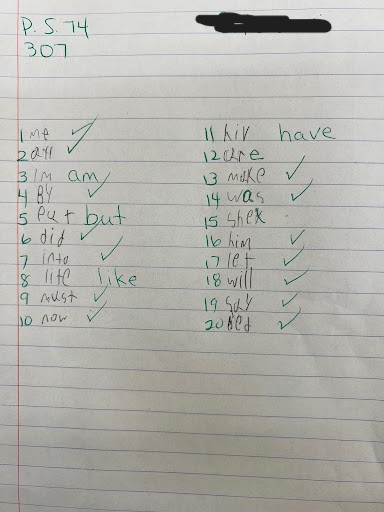 P.S. 74
307
1 me ✓
2 all ✓
3 Im am
4 By ✓
5 but
6 did ✓
7 into ✓
8 lite like
9 must ✓
10 now ✓
11 hiv have
12 are
13 make ✓
14 was ✓
15 she x
16 him ✓
17 let ✓
18 will ✓
19 say ✓
20 ✓